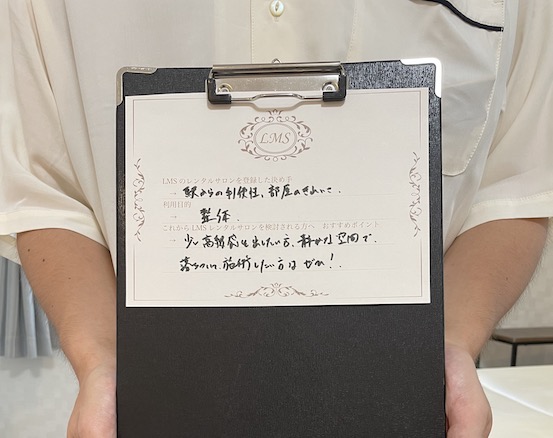 LMS
LMSのレンタルサロンを登録した決め手
→ 駅からの利便性、部屋のきれいさ.
利用目的
→ 整体.
これからLMSレンタルサロンを検討される方へ おすすめポイント
→ 少し高級感を出したい方、静かな空間で
落ちついて施術したい方は ぜひ!.